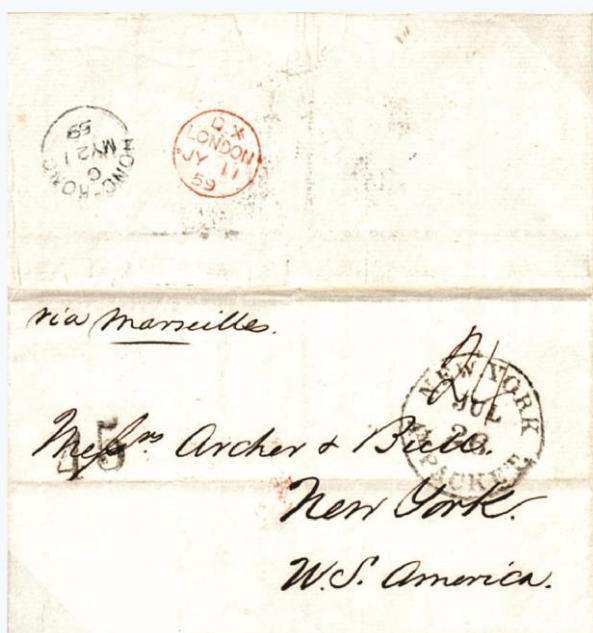 HONG-KONG
C
MY 21
59
D.X
LONDON
JY 11
59
via Marseilles.
NEW YORK
JUL
AM. PACKET
45
Messrs Archer & Bull.
New York.
U.S. America.